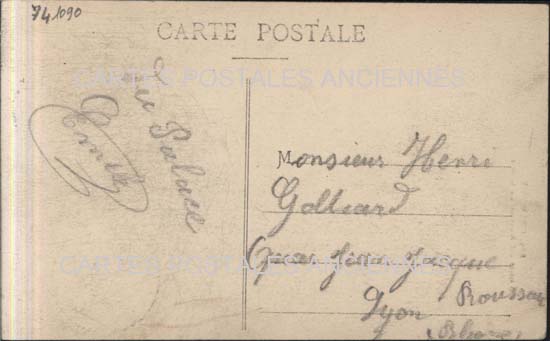 741090
CARTE POSTALE
CARTES POSTALES ANCIENNES
au Palace
Emile
Monsieur Henri
Golliard
Quai Jean Jaque
Rousseau
Lyon
(Rhone)
CARTES POSTALES ANCIENNES